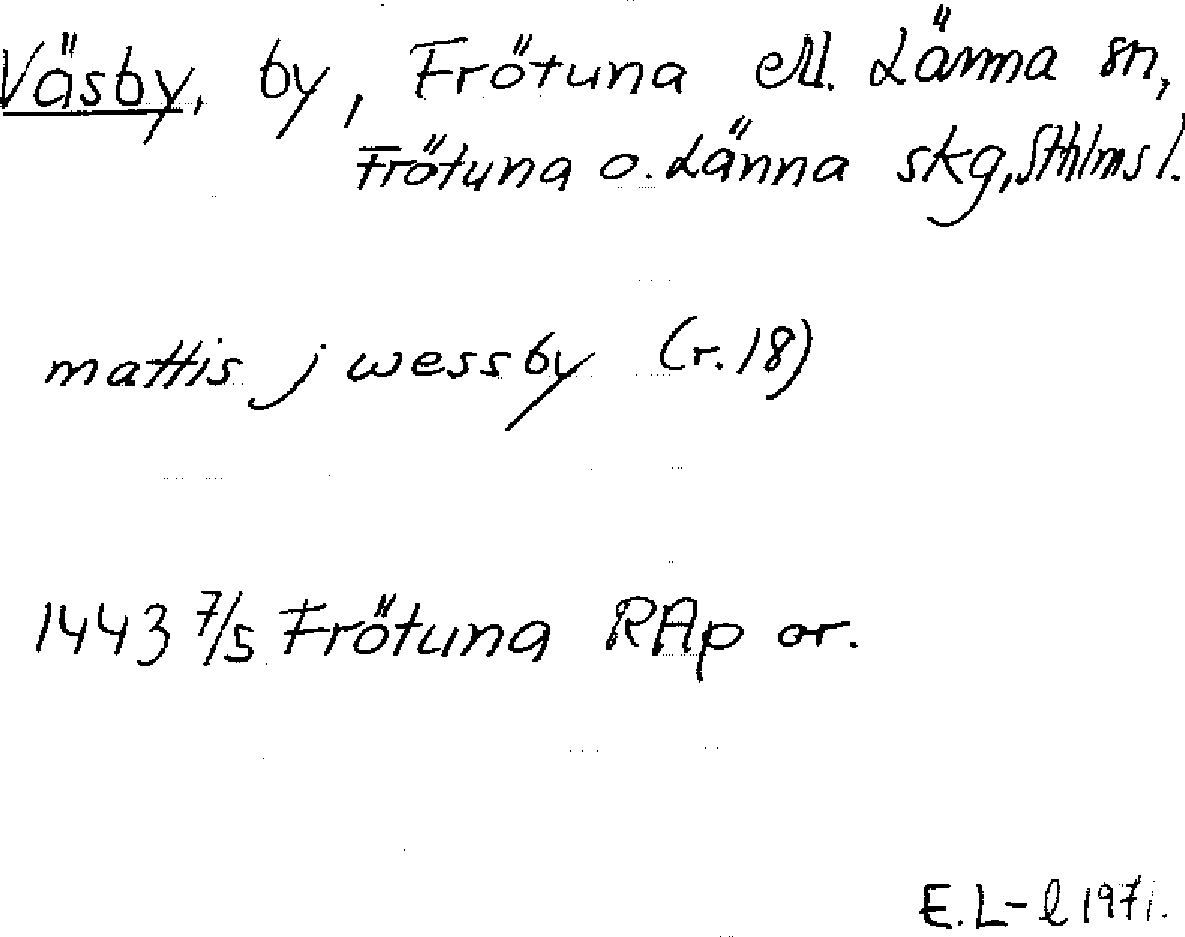 Väsby, by, Frötuna ell. Länna sn,
Frötuna o. Länna skg, Sthlms l.
mattis j wessby (r. 18)
1443 7/5 Frötuna RAp or.
E.L-l 1971.